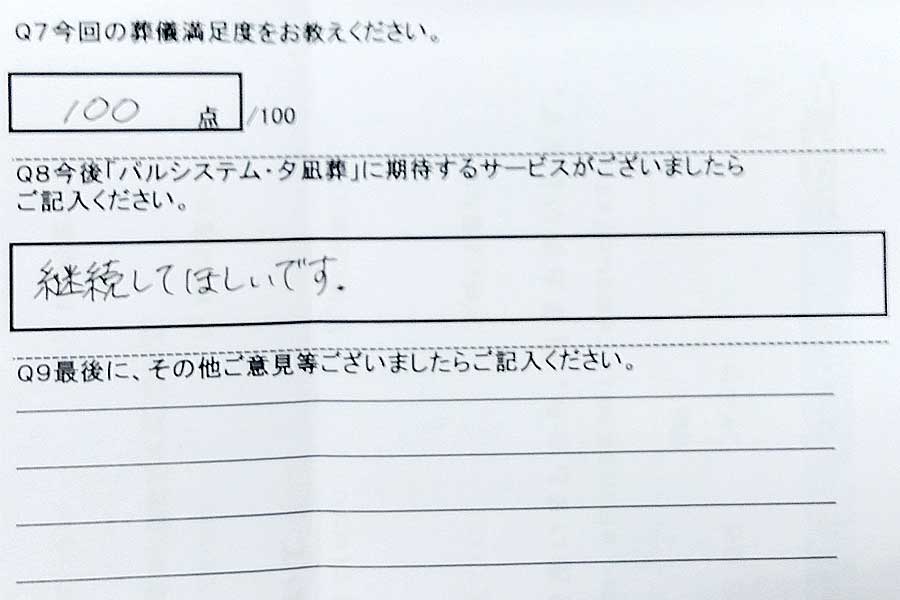 Q7今回の葬儀満足度をお教えください。
100 点 /100
Q8今後「パルシステム・夕凪葬」に期待するサービスがございましたら
ご記入ください。
継続してほしいです.
Q9最後に、その他ご意見等ございましたらご記入ください。